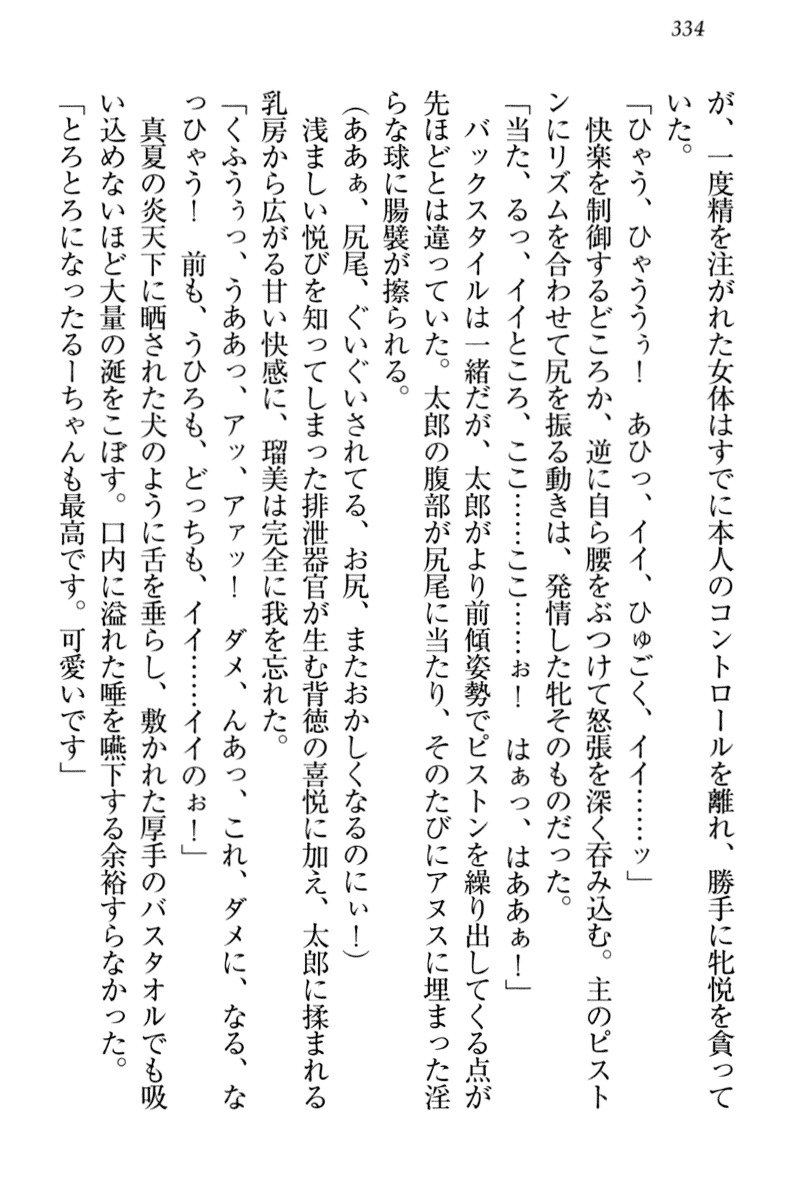 334
が、一度精を注がれた女体はすでに本人のコントロールを離れ、勝手に牝悦を貪って
いた。
「ひゃう、ひゃううぅ！　あひっ、イイ、ひゅごく、イイ……ッ」
快楽を制御するどころか、逆に自ら腰をぶつけて怒張を深く呑み込む。主のピスト
ンにリズムを合わせて尻を振る動きは、発情した牝そのものだった。
「当た、るっ、イイところ、ここ……ここ……ぉ！　はぁっ、はああぁ！」
バックスタイルは一緒だが、太郎がより前傾姿勢でピストンを繰り出してくる点が
先ほどとは違っていた。太郎の腹部が尻尾に当たり、そのたびにアヌスに埋まった淫
らな球に腸襞が擦られる。
（ああぁ、尻尾、ぐいぐいされてる、お尻、またおかしくなるのにぃ！）
浅ましい悦びを知ってしまった排泄器官が生む背徳の喜悦に加え、太郎に揉まれる
乳房から広がる甘い快感に、瑠美は完全に我を忘れた。
「くふうぅっ、うああっ、アッ、アァッ！　ダメ、んあっ、これ、ダメに、なる、な
っひゃう！　前も、うひろも、どっちも、イイ……イイのぉ！」
真夏の炎天下に晒された犬のように舌を垂らし、敷かれた厚手のバスタオルでも吸
い込めないほど大量の涎をこぼす。口内に溢れた唾を嚥下する余裕すらなかった。
「とろとろになったるーちゃんも最高です。可愛いです」